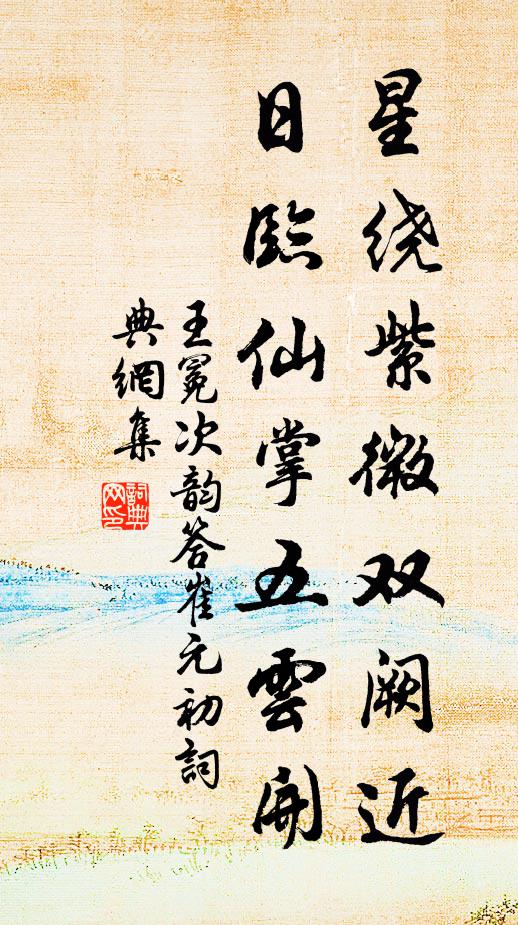 星绕紫微双阙近
日臨仙掌五雲開
王冕次韵答崔元初詞
典網集
詞典网印